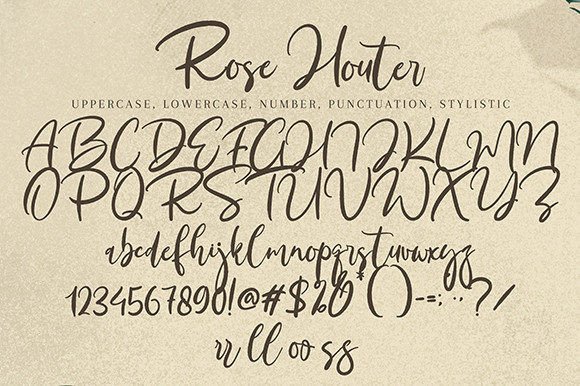 Rose Houter
UPPERCASE, LOWERCASE, NUMBER, PUNCTUATION, STYLISTIC
ABCDEFGHIJKLMN
OPQRSTUVWXYZ
abcdefhijklmnopqrstuvwxyz
1234567890!@#$%*()-=;..?/
rr ll oo ss